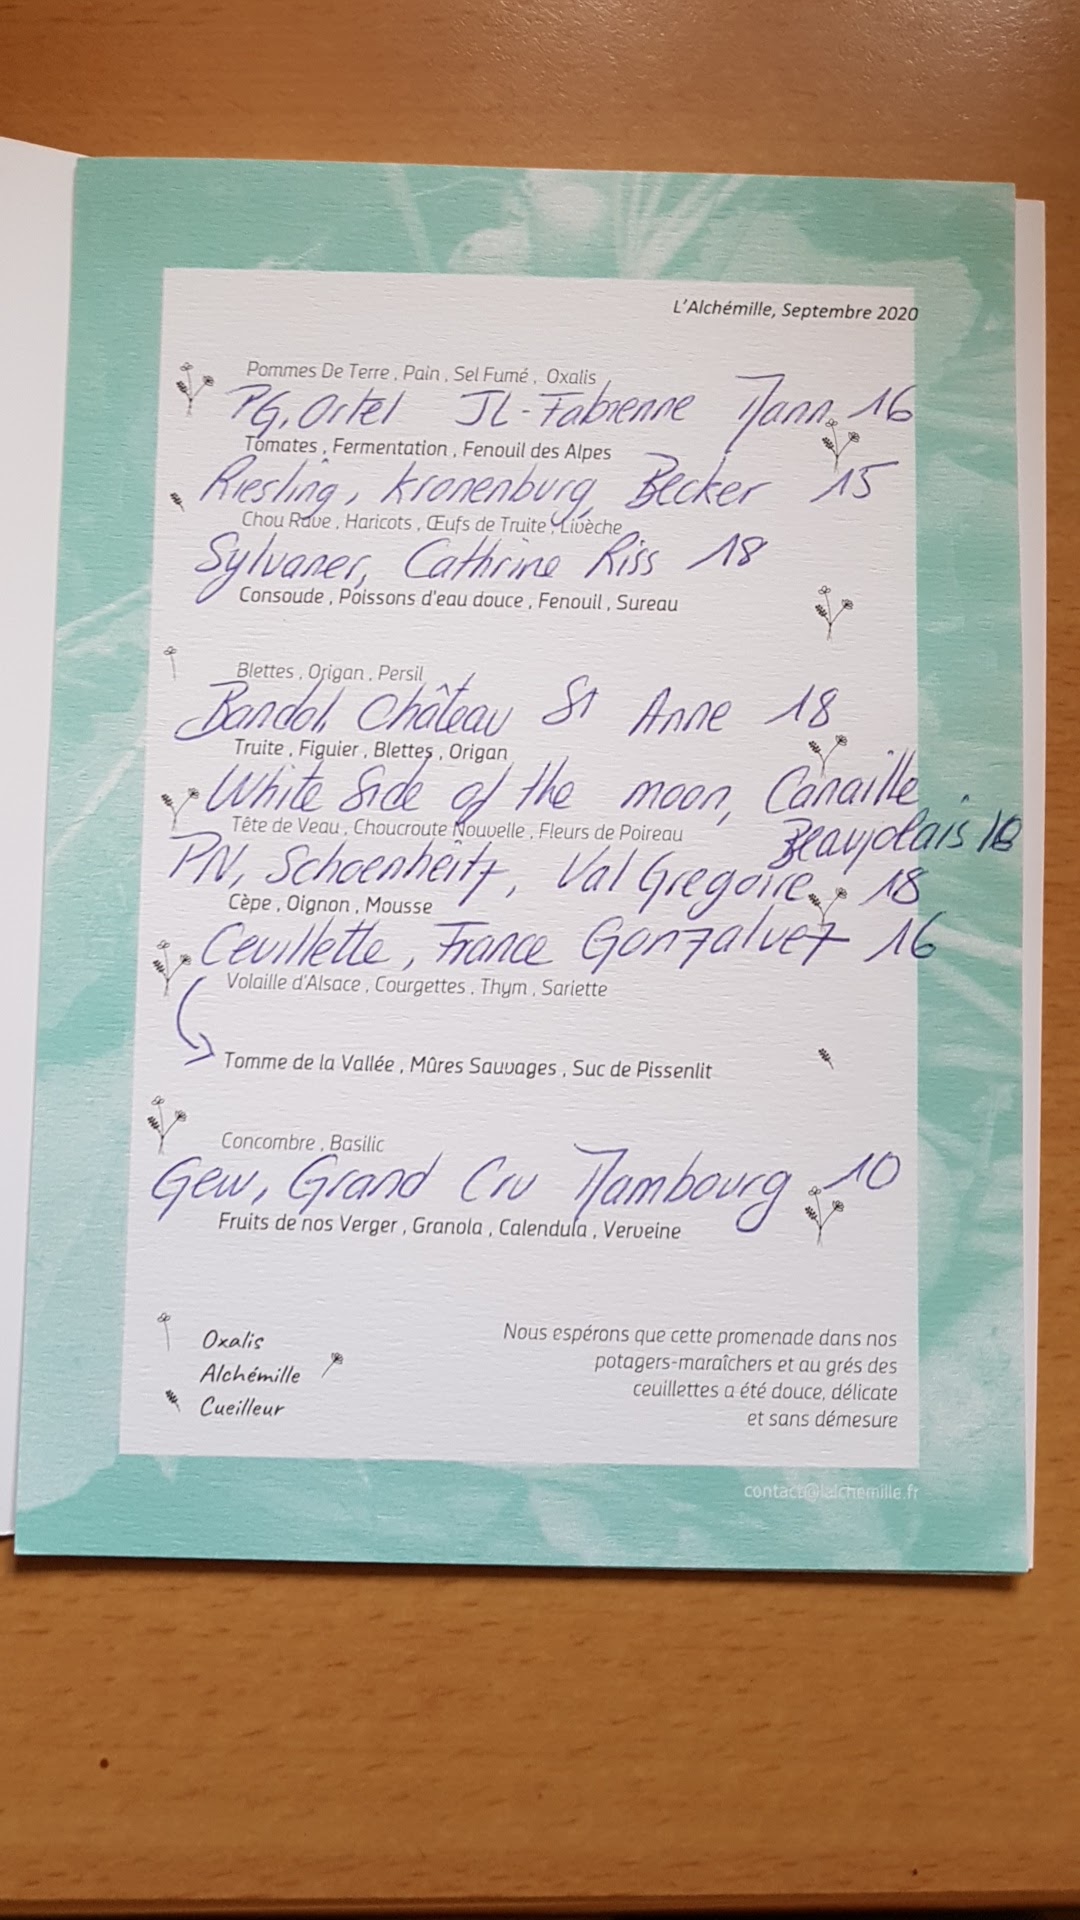 L'Alchémille, Septembre 2020
Pommes De Terre , Pain , Sel Fumé , Oxalis
PG, Ortel JL-Fabienne Mann 16
Tomates , Fermentation , Fenouil des Alpes
Riesling, Kronenburg, Becker 15
Chou Rave , Haricots , Œufs de Truite , Livèche
Sylvaner, Cathrine Riss 18
Consoude , Poissons d'eau douce , Fenouil , Sureau
Blettes , Origan , Persil
Bandol, Château St Anne 18
Truite , Figuier , Blettes , Origan
White Side of the moon, Canaille
Tête de Veau , Choucroute Nouvelle , Fleurs de Poireau
Beaujolais 18
PN, Schoenheitz, Val Gregoire 18
Cèpe , Oignon , Mousse
Ceuillette, France Gonzalvez 16
Volaille d'Alsace , Courgettes , Thym , Sariette
Tomme de la Vallée , Mûres Sauvages , Suc de Pissenlit
Concombre , Basilic
Gew, Grand Cru Mambourg 10
Fruits de nos Verger , Granola , Calendula , Verveine
Oxalis
Alchémille
Cueilleur
Nous espérons que cette promenade dans nos
potagers-maraîchers et au grés des
ceuillettes a été douce, délicate
et sans démesure
contact@lalchemille.fr